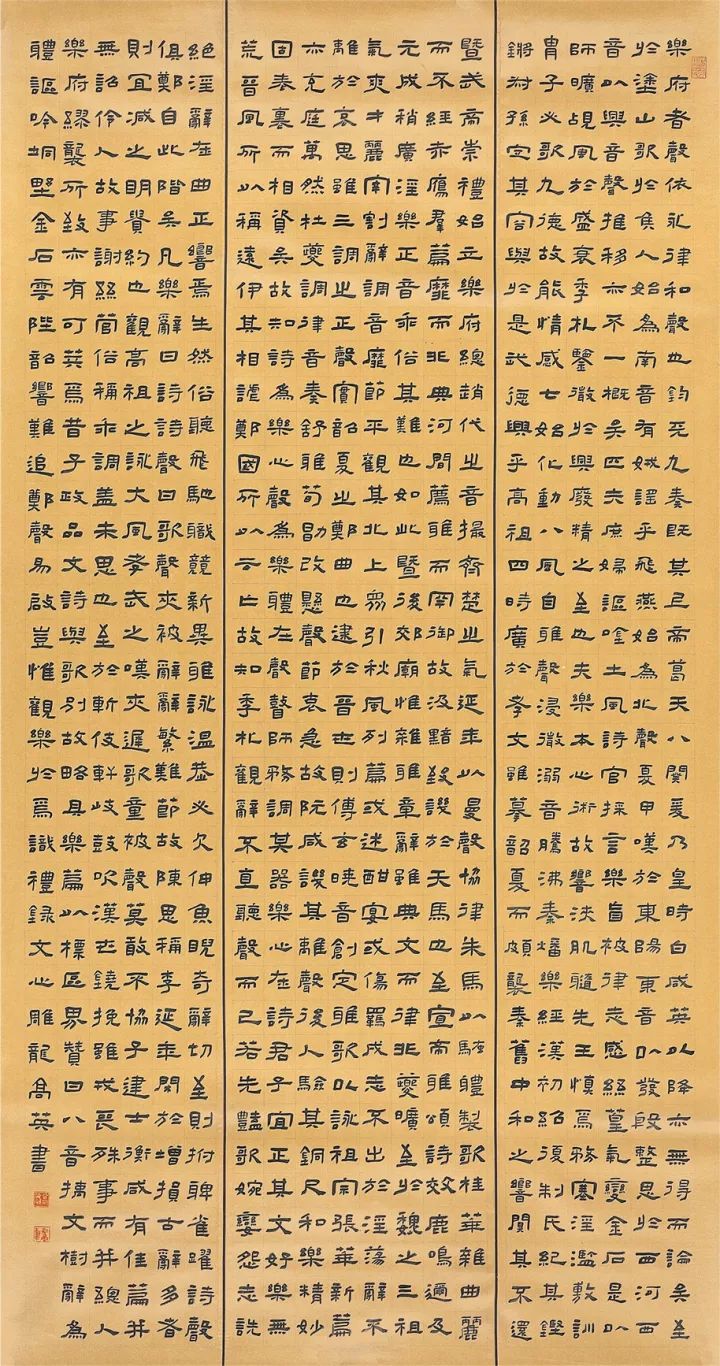 樂府者聲依永律和聲也鈞天九奏既其上帝葛天八闋爰乃皇時自咸英以降亦無得而論矣至
於塗山歌於候人始為南音有娀謠乎飛燕始為北聲夏甲嘆於東陽東音以發殷整思於西河西
音以興音聲推移亦不一概矣匹夫庶婦謳吟土風詩官採言樂盲被律志感絲篁氣變金石是以
師曠覘風於盛衰季札鑒微於興廢精之至也夫樂本心術故響浹肌髓先王慎焉務塞淫濫敷訓
胄子必歌九德故能情感七始化動八風自雅聲浸微溺音騰沸秦燔樂經漢初紹復制氏紀其鏗
鏘叔孫定其容與於是武德興乎高祖四時廣於孝文雖摹韶夏而頗襲秦舊中和之響闃其不還
暨武帝崇禮始立樂府總趙代之音撮齊楚之氣延年以曼聲協律朱馬以騷體製歌桂華雜曲麗
而不經赤鴈羣篇靡而非典河間薦雅而罕御故汲黯致譏於天馬也至宣帝雅頌詩效鹿鳴邇及
元成稍廣淫樂正音乖俗其難也如此暨後郊廟惟雜雅章辭雖典文而律非夔曠至於魏之三祖
氣爽才麗宰割辭調音靡節平觀其北上眾引秋風列篇或述酣宴或傷羈戍志不出於淫蕩辭不
離於哀思雖三調之正聲實韶夏之鄭曲也逮於晉世則傅玄曉音創定雅歌以詠祖宗張華新篇
亦充庭萬然杜夔調律音奏舒雅荀勖改懸聲節哀急故阮咸譏其離聲後人驗其銅尺和樂精妙
固表裏而相資矣故知詩為樂心聲為樂體在聲瞽師務調其器樂心在詩君子宜正其文好樂無
荒晉風所以稱遠伊其相謔鄭國所以云亡故知季札觀辭不直聽聲而已若先豔歌婉孌怨志訣
絕淫辭在曲正響焉生然俗聽飛馳職競新異雅詠溫恭必欠伸魚睨奇辭切至則拊髀雀躍詩聲
俱鄭自此階矣凡樂辭曰詩詩聲曰歌聲來被辭辭繁難節故陳思稱李延年閑於增損古辭多者
則宜減之明貴約也觀高祖之詠大風孝武之嘆來遲歌童被聲莫敢不協子建士衡咸有佳篇并
無詔伶人故事謝絲管俗稱乖調蓋未思也至於斬伎軒岐鼓吹漢世鐃挽雖戎喪殊事而并總入
樂府繆襲所致亦有可英焉昔子政品文詩與歌別故略具樂篇以標區界贊曰八音摛文樹辭為
體謳吟坰野金石雲陛韶響難追鄭聲易啟豈惟觀樂於焉識禮錄文心雕龍高英書